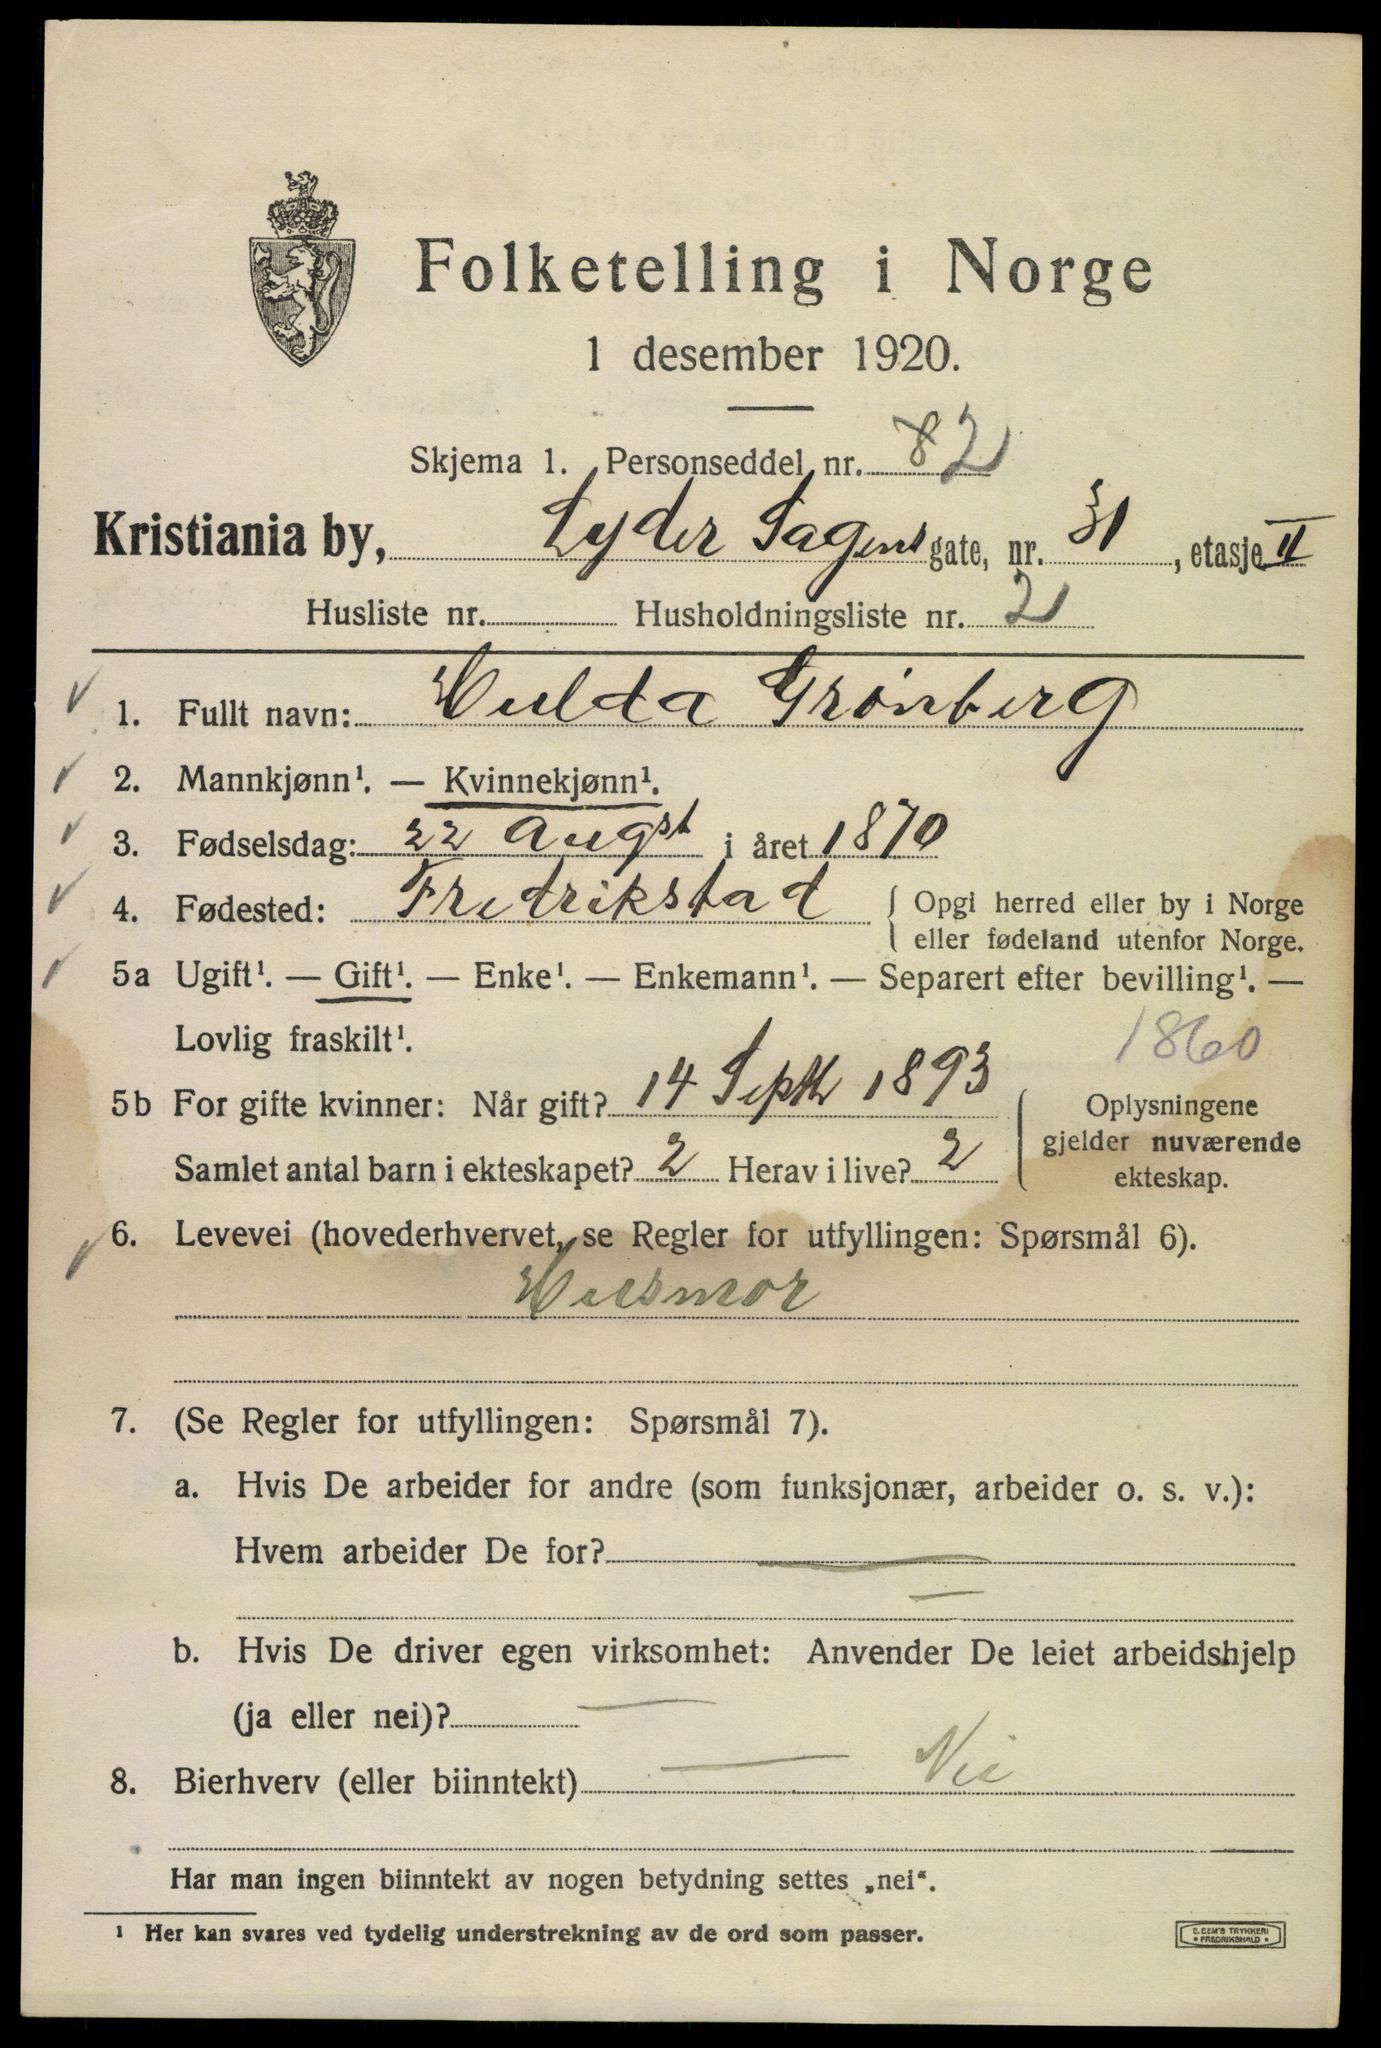 Folketelling i Norge
1 desember 1920.
Skjema 1. Personseddel nr. 82
Kristiania by, Lyder Sagens gate, nr. 31, etasje II
Husliste nr. Husholdningsliste nr. 2
1. Fullt navn: Hulda Grönberg
2. Mannkjønn¹. — Kvinnekjønn¹.
3. Fødselsdag: 22 Augst i året 1870
4. Fødested: Fredrikstad { Opgi herred eller by i Norge
eller fødeland utenfor Norge.
5a Ugift¹. — Gift¹. — Enke¹. — Enkemann¹. — Separert efter bevilling¹. —
Lovlig fraskilt¹. 1860
5b For gifte kvinner: Når gift? 14 Septbr 1893
Samlet antal barn i ekteskapet? 2 Herav i live? 2
Oplysningene
gjelder nuværende
ekteskap.
6. Levevei (hovederhvervet, se Regler for utfyllingen: Spørsmål 6).
Husmor
7. (Se Regler for utfyllingen: Spørsmål 7).
a. Hvis De arbeider for andre (som funksjonær, arbeider o. s. v.):
Hvem arbeider De for? —
—
b. Hvis De driver egen virksomhet: Anvender De leiet arbeidshjelp
(ja eller nei)? —
8. Bierhverv (eller biinntekt) — Nei
Har man ingen biinntekt av nogen betydning settes „nei“.
¹ Her kan svares ved tydelig understrekning av de ord som passer.
E. SEM'S TRYKKERI
* FREDRIKSHALD *